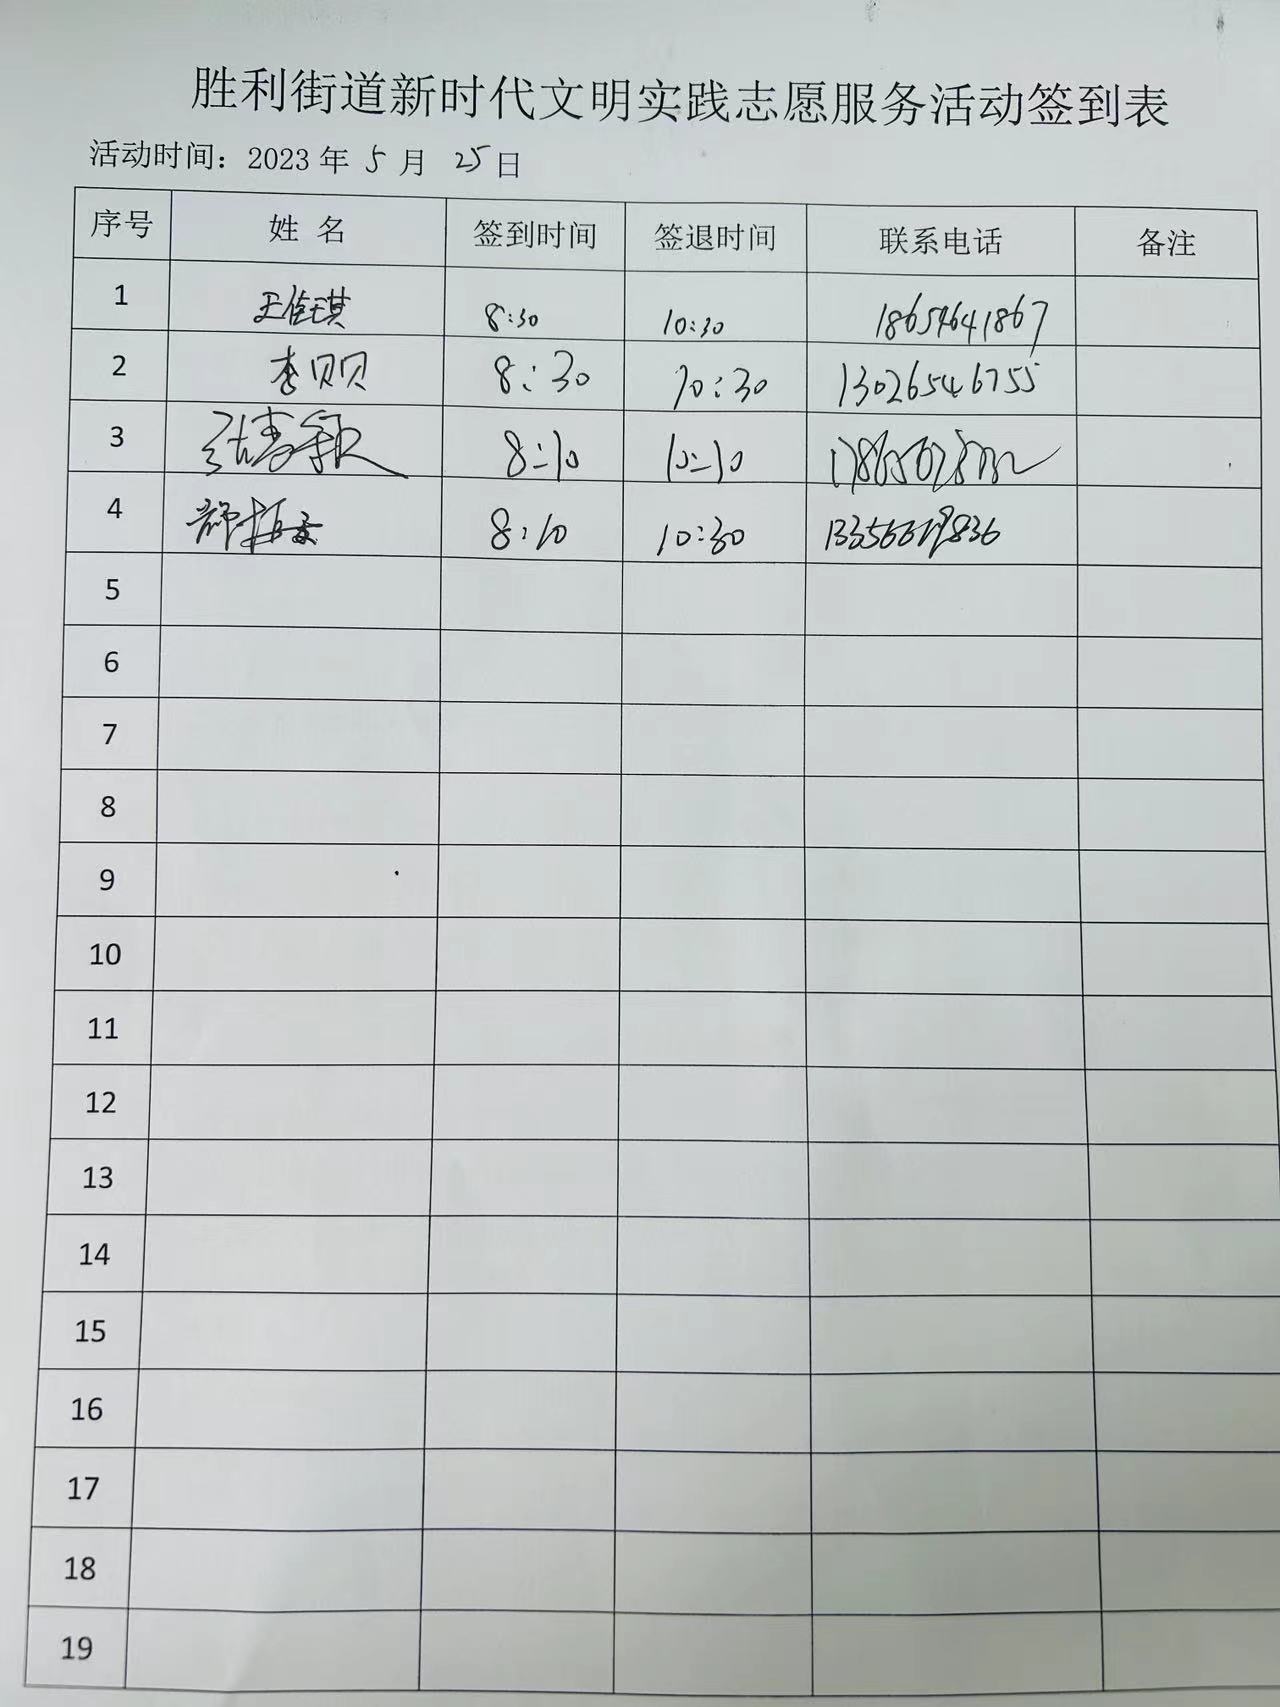 胜利街道新时代文明实践志愿服务活动签到表
活动时间：2023 年 5 月 25 日
序号 姓 名 签到时间 签退时间 联系电话 备注
1 王佳琪 8:30 10:30 18654641867
2 李贝贝 8:30 10:30 13026546755
3 8:10 10:10
4 8:10 10:30
5
6
7
8
9
10
11
12
13
14
15
16
17
18
19